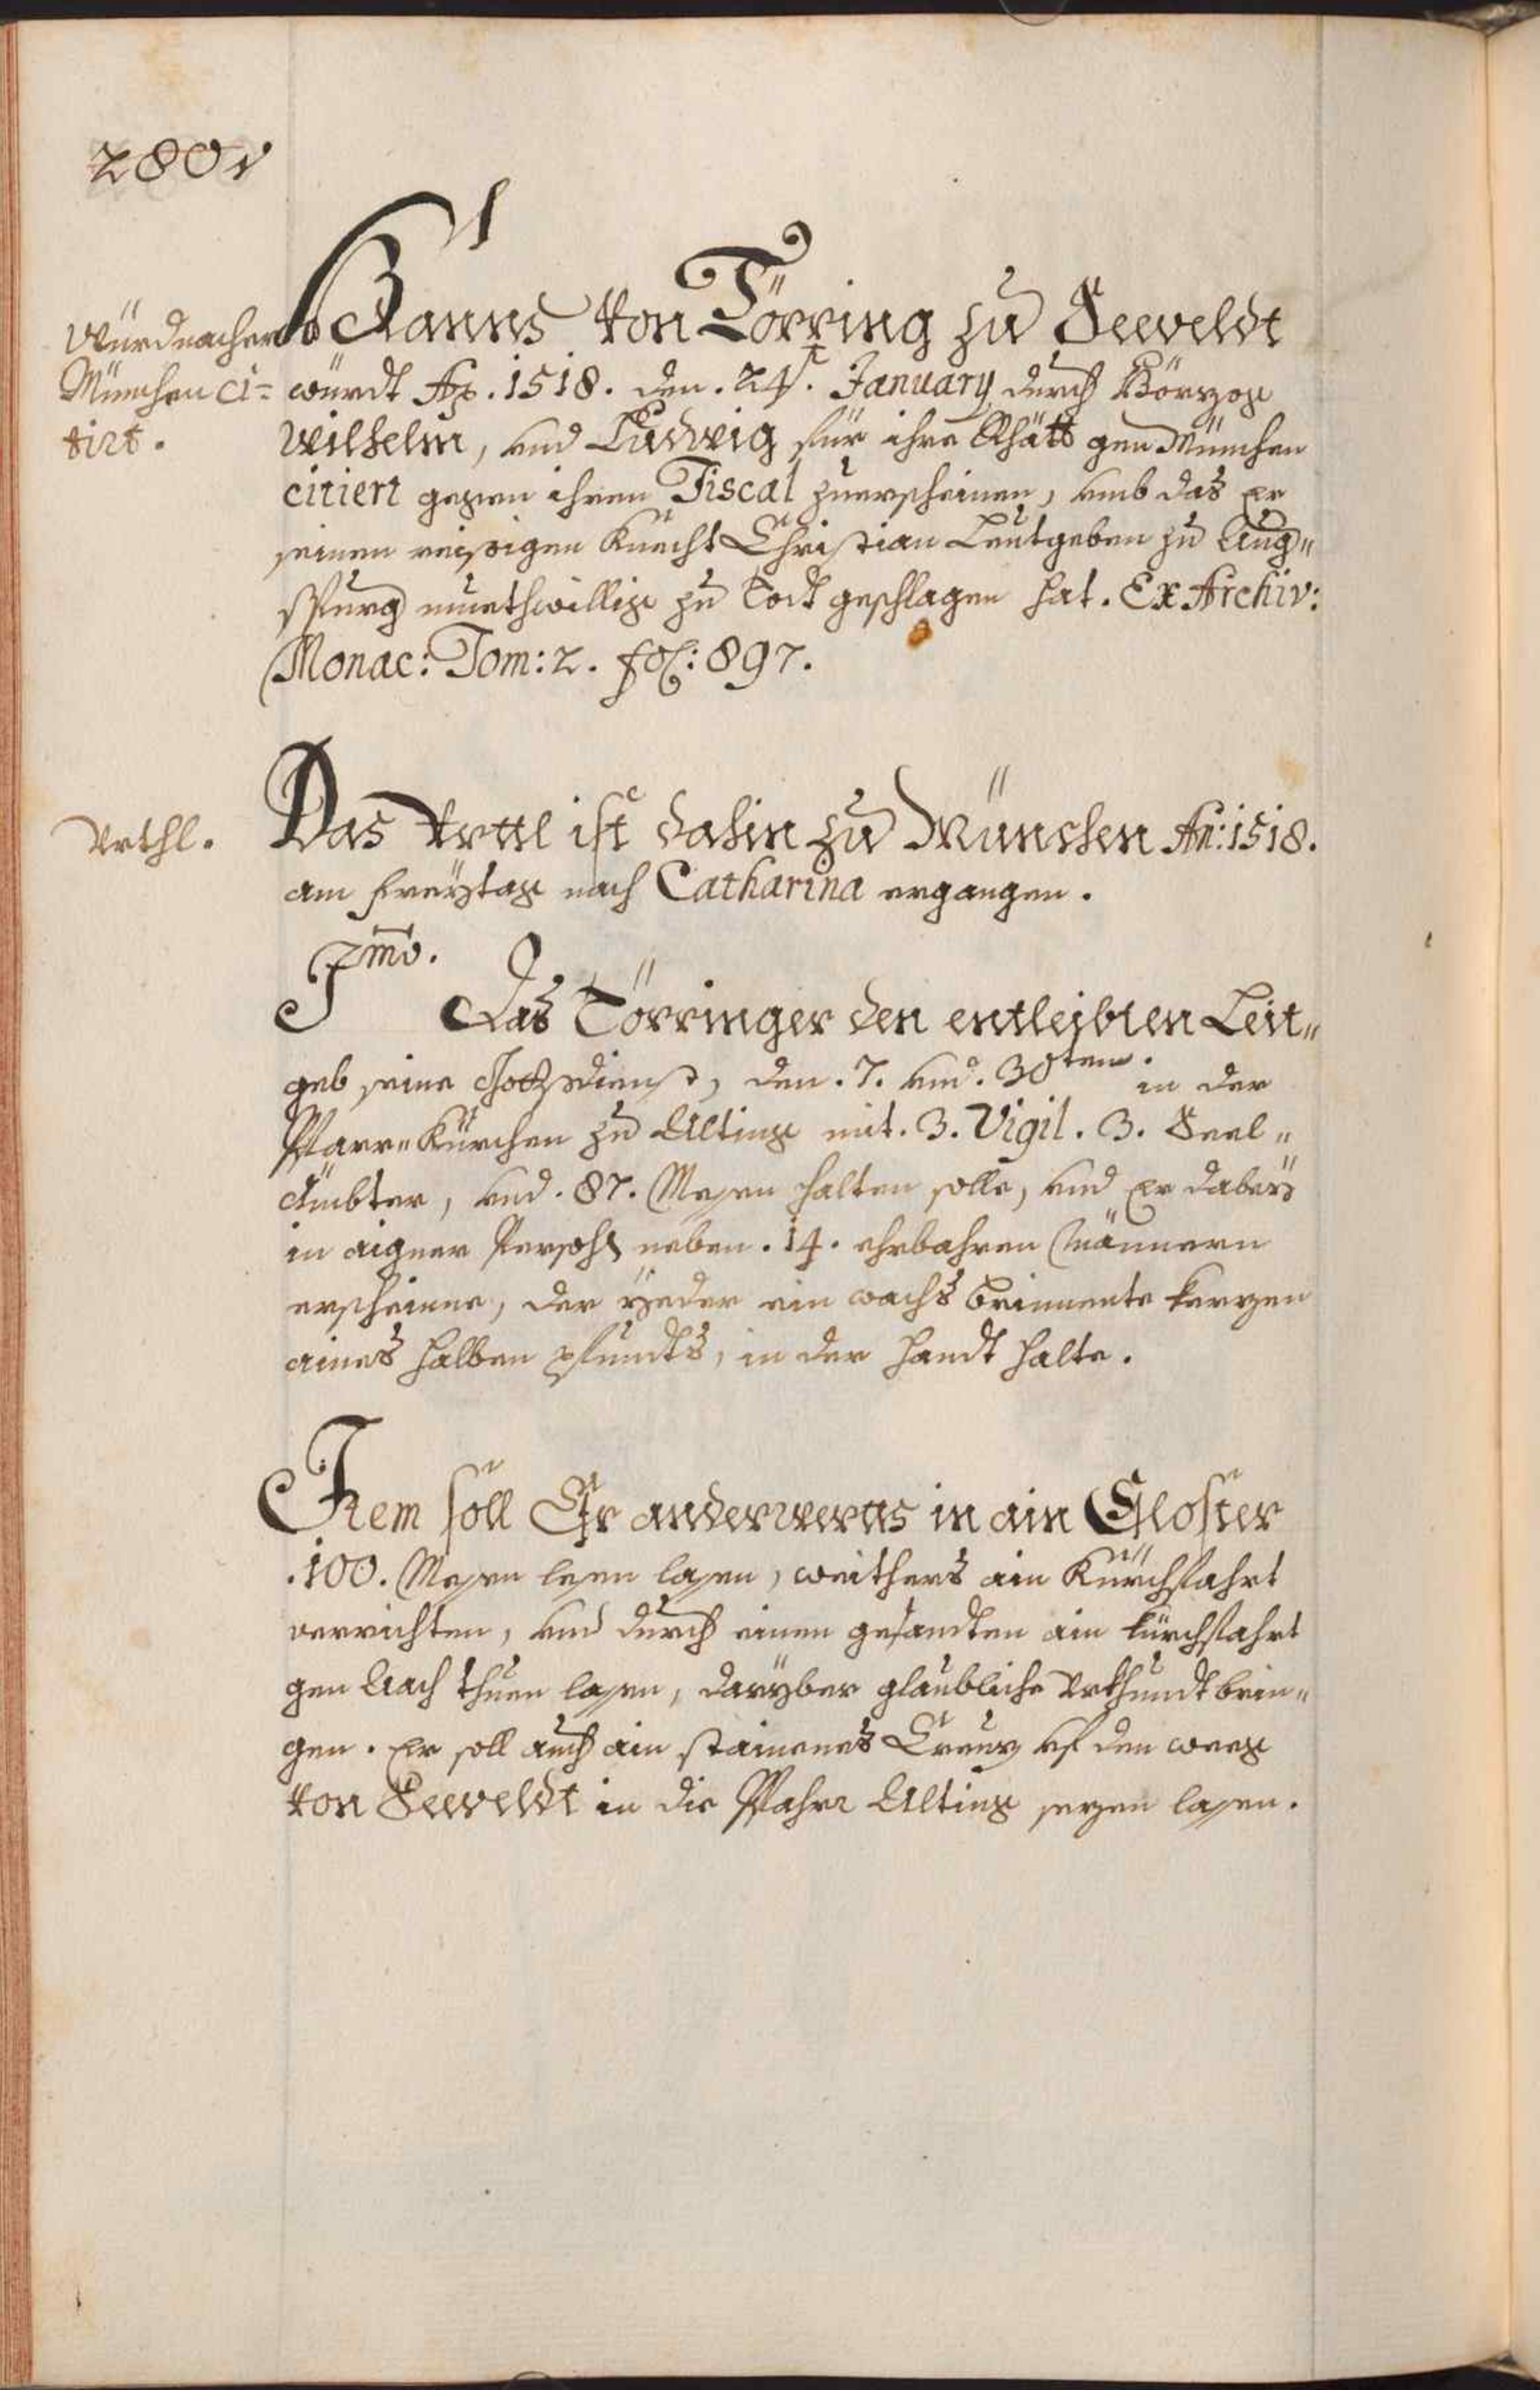 280v
Hanns von Törring zu Seeveldt
Würd nacher
München ci=
tirt.
würdt Ao. 1518. den. 24t. January durch Hörzog
Wilhelm, vnd Ludwig für ihre Rhätt gen München
citiert gegen ihren Fiscal zuerscheinen, vmb das Er
seinen reissigen Knecht Christian Leutgeben zu Aug„
spurg muethwillig zu Todt geschlagen hat. Ex Archiv:
Monac: Tom: 2. fol: 897.
Vrthl.
Das Vrttl ist dahin zu München An: 1518.
am Freytag nach Catharina ergangen.
Imo.
Das Törringer den entleibten Leit„
geb seine Gottsdienst, den. 7. vnd. 30ten. in der
Pfarr„Kürchen zu Alting mit. 3. Vigil. 3. Seel„
Ämbter, vnd. 87. Messen halten solle, vnd Er dabey
in aigner Persohn neben. 14. ehrbahren Männern
erscheine, der yeder ein wachs brinnente kerzen
aines halben pfundts, in der handt halte.
Item soll Er anderwerts in ain Closter
.100. Messen lesen lassen, weithers ain Kürchfahrt
verrichten, vnd durch einen gesandten ain kürchfahrt
gen Aach thuen lassen, daryber glaubliche Vrkhundt brin„
gen. Er soll auch ain stainenes Creuz vf den weeg
von Seeveldt in die Pfahrr Alting sezen lassen.